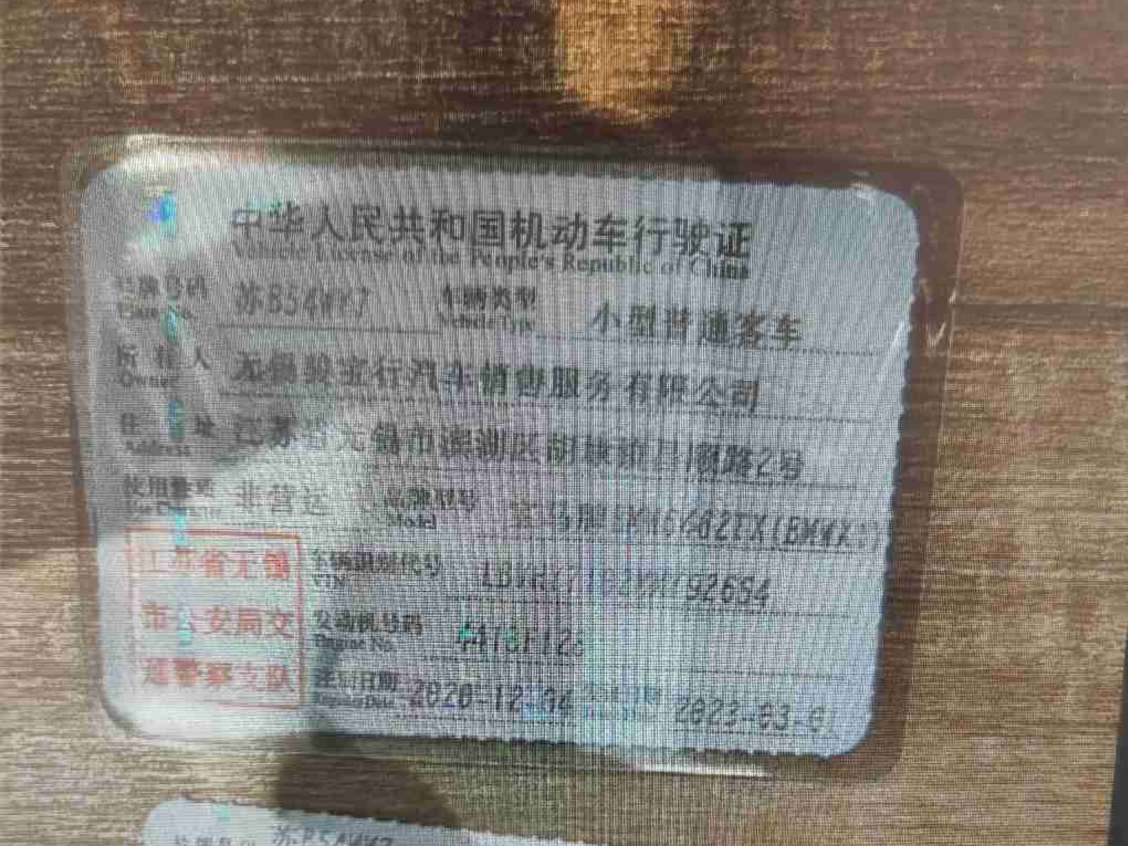 中华人民共和国机动车行驶证
Vehicle License of the People's Republic of China
号牌号码 苏B54WY7 车辆类型 小型普通客车
Plate No. Vehicle Type
所有人 无锡骏宝行汽车销售服务有限公司
Owner
住址 江苏省无锡市滨湖区胡埭镇昌顺路2号
Address
使用性质 非营运 品牌型号 宝马牌
Use Character Model
江苏省无锡 车辆识别代号
VIN
市公安局交 发动机号码
Engine No.
通警察支队 注册日期 2020-12-04 2023-03-01
Register Date
号牌号码 苏B54WY7